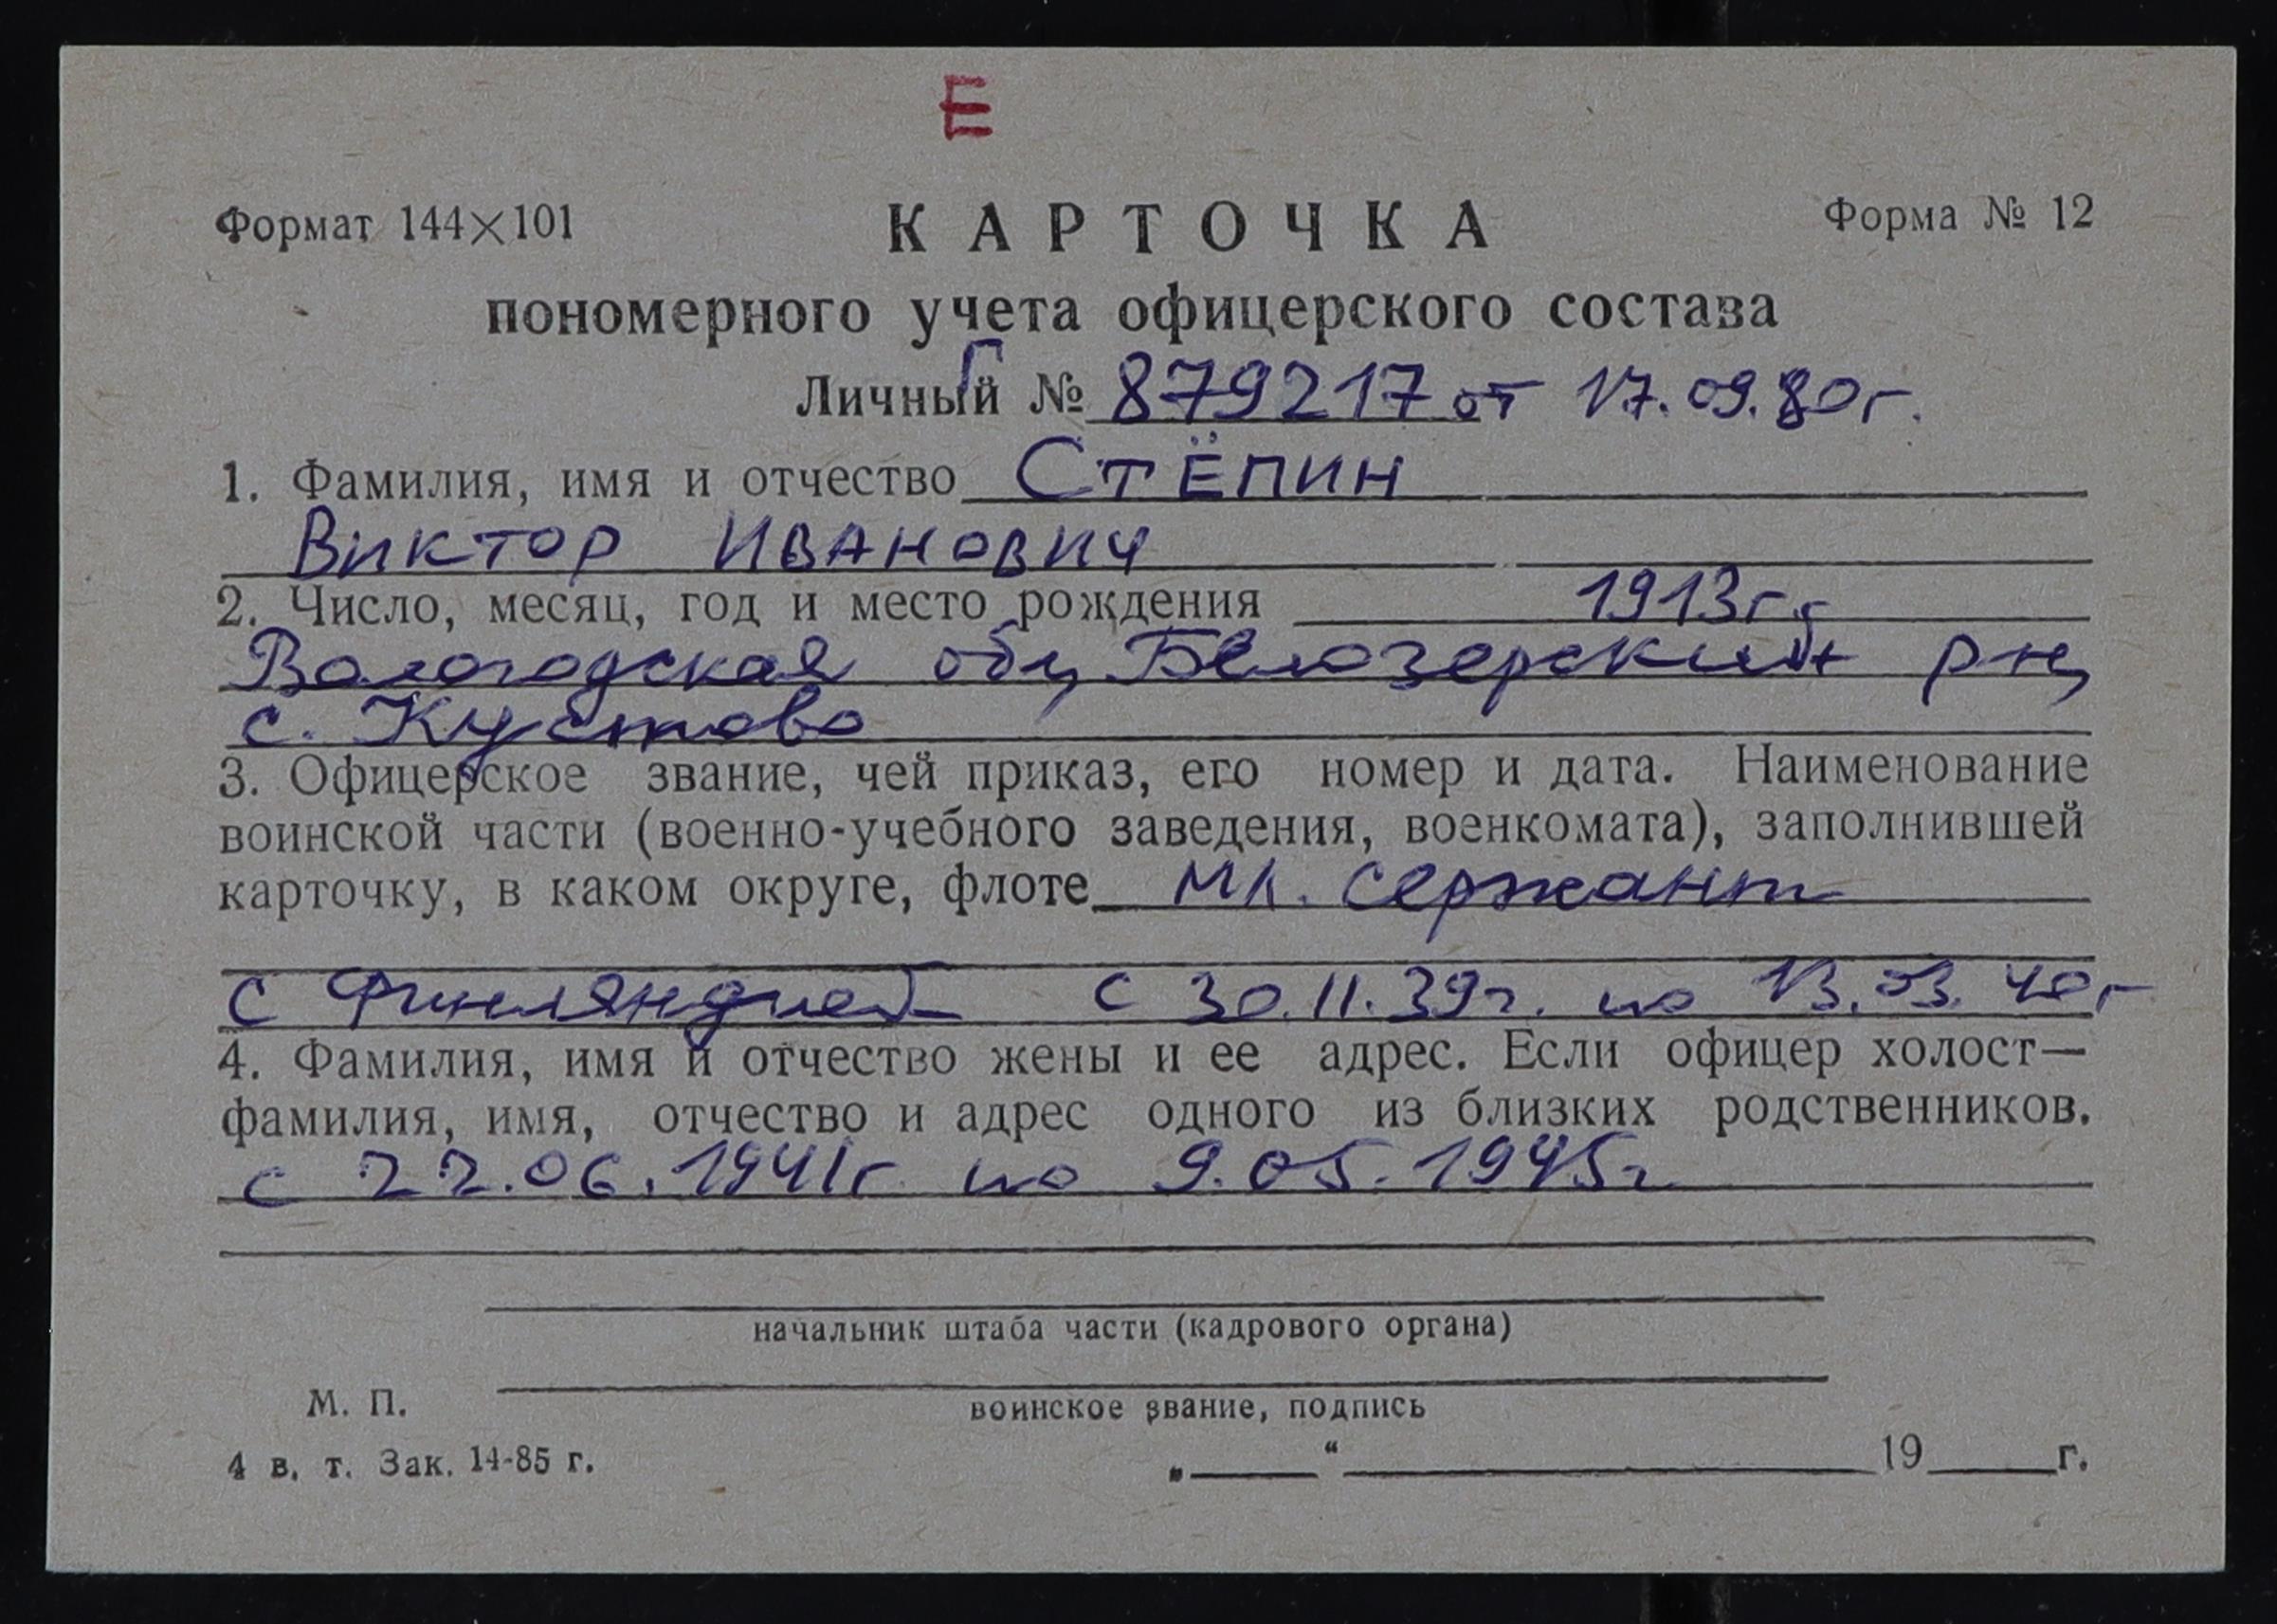 Е
Формат 144×101 КАРТОЧКА Форма № 12
пономерного учета офицерского состава
Личный № Г 879217 от 17.09.80г.
1. Фамилия, имя и отчество Стёпин
Виктор Иванович
2. Число, месяц, год и место рождения 1913г.
Вологодская обл Белозерский р-н,
с. Кустово
3. Офицерское звание, чей приказ, его номер и дата. Наименование
воинской части (военно-учебного заведения, военкомата), заполнившей
карточку, в каком округе, флоте мл. сержант
с Финляндией с 30.11.39г. по 13.03.40г
4. Фамилия, имя и отчество жены и ее адрес. Если офицер холост—
фамилия, имя, отчество и адрес одного из близких родственников.
с 22.06.1941г по 9.05.1945г
начальник штаба части (кадрового органа)
М. П.
воинское звание, подпись
4 в. т. Зак. 14-85 г. „ “ 19 г.